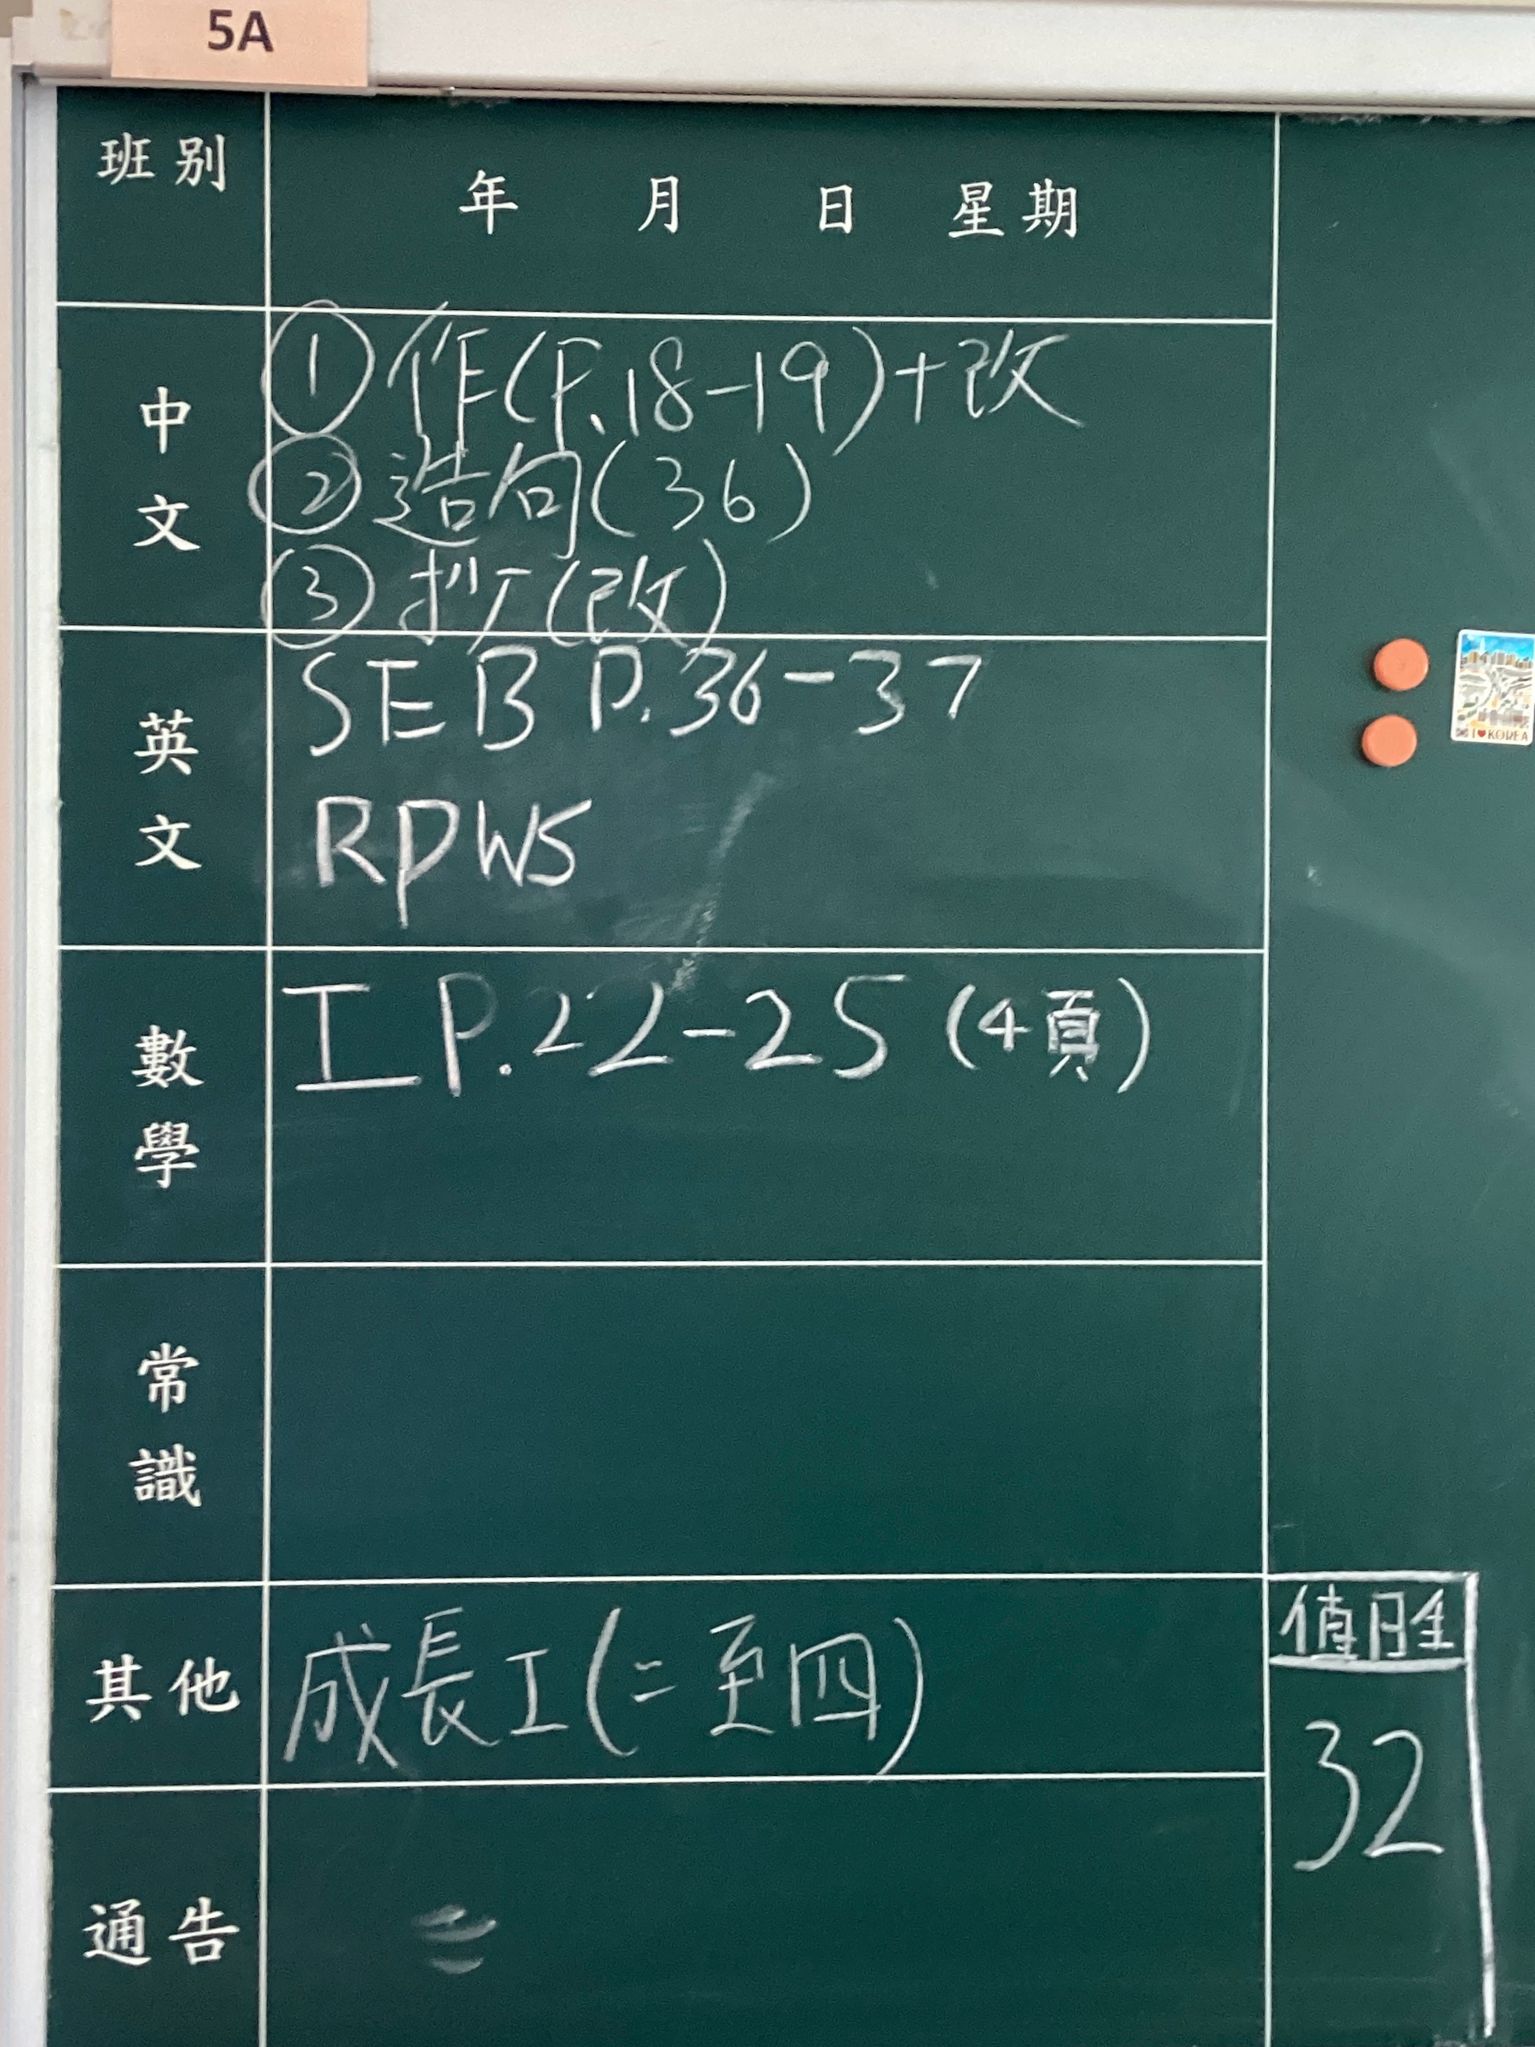 5A
班別
年 月 日 星期
中文
①作(P.18-19)+改
②造句(36)
③ (改)
英文
SEB P.36-37
RPWS
數學
工 P.22-25 (4頁)
常識
其他
成長工(二至四)
通告
I♥KOREA
值日生
32